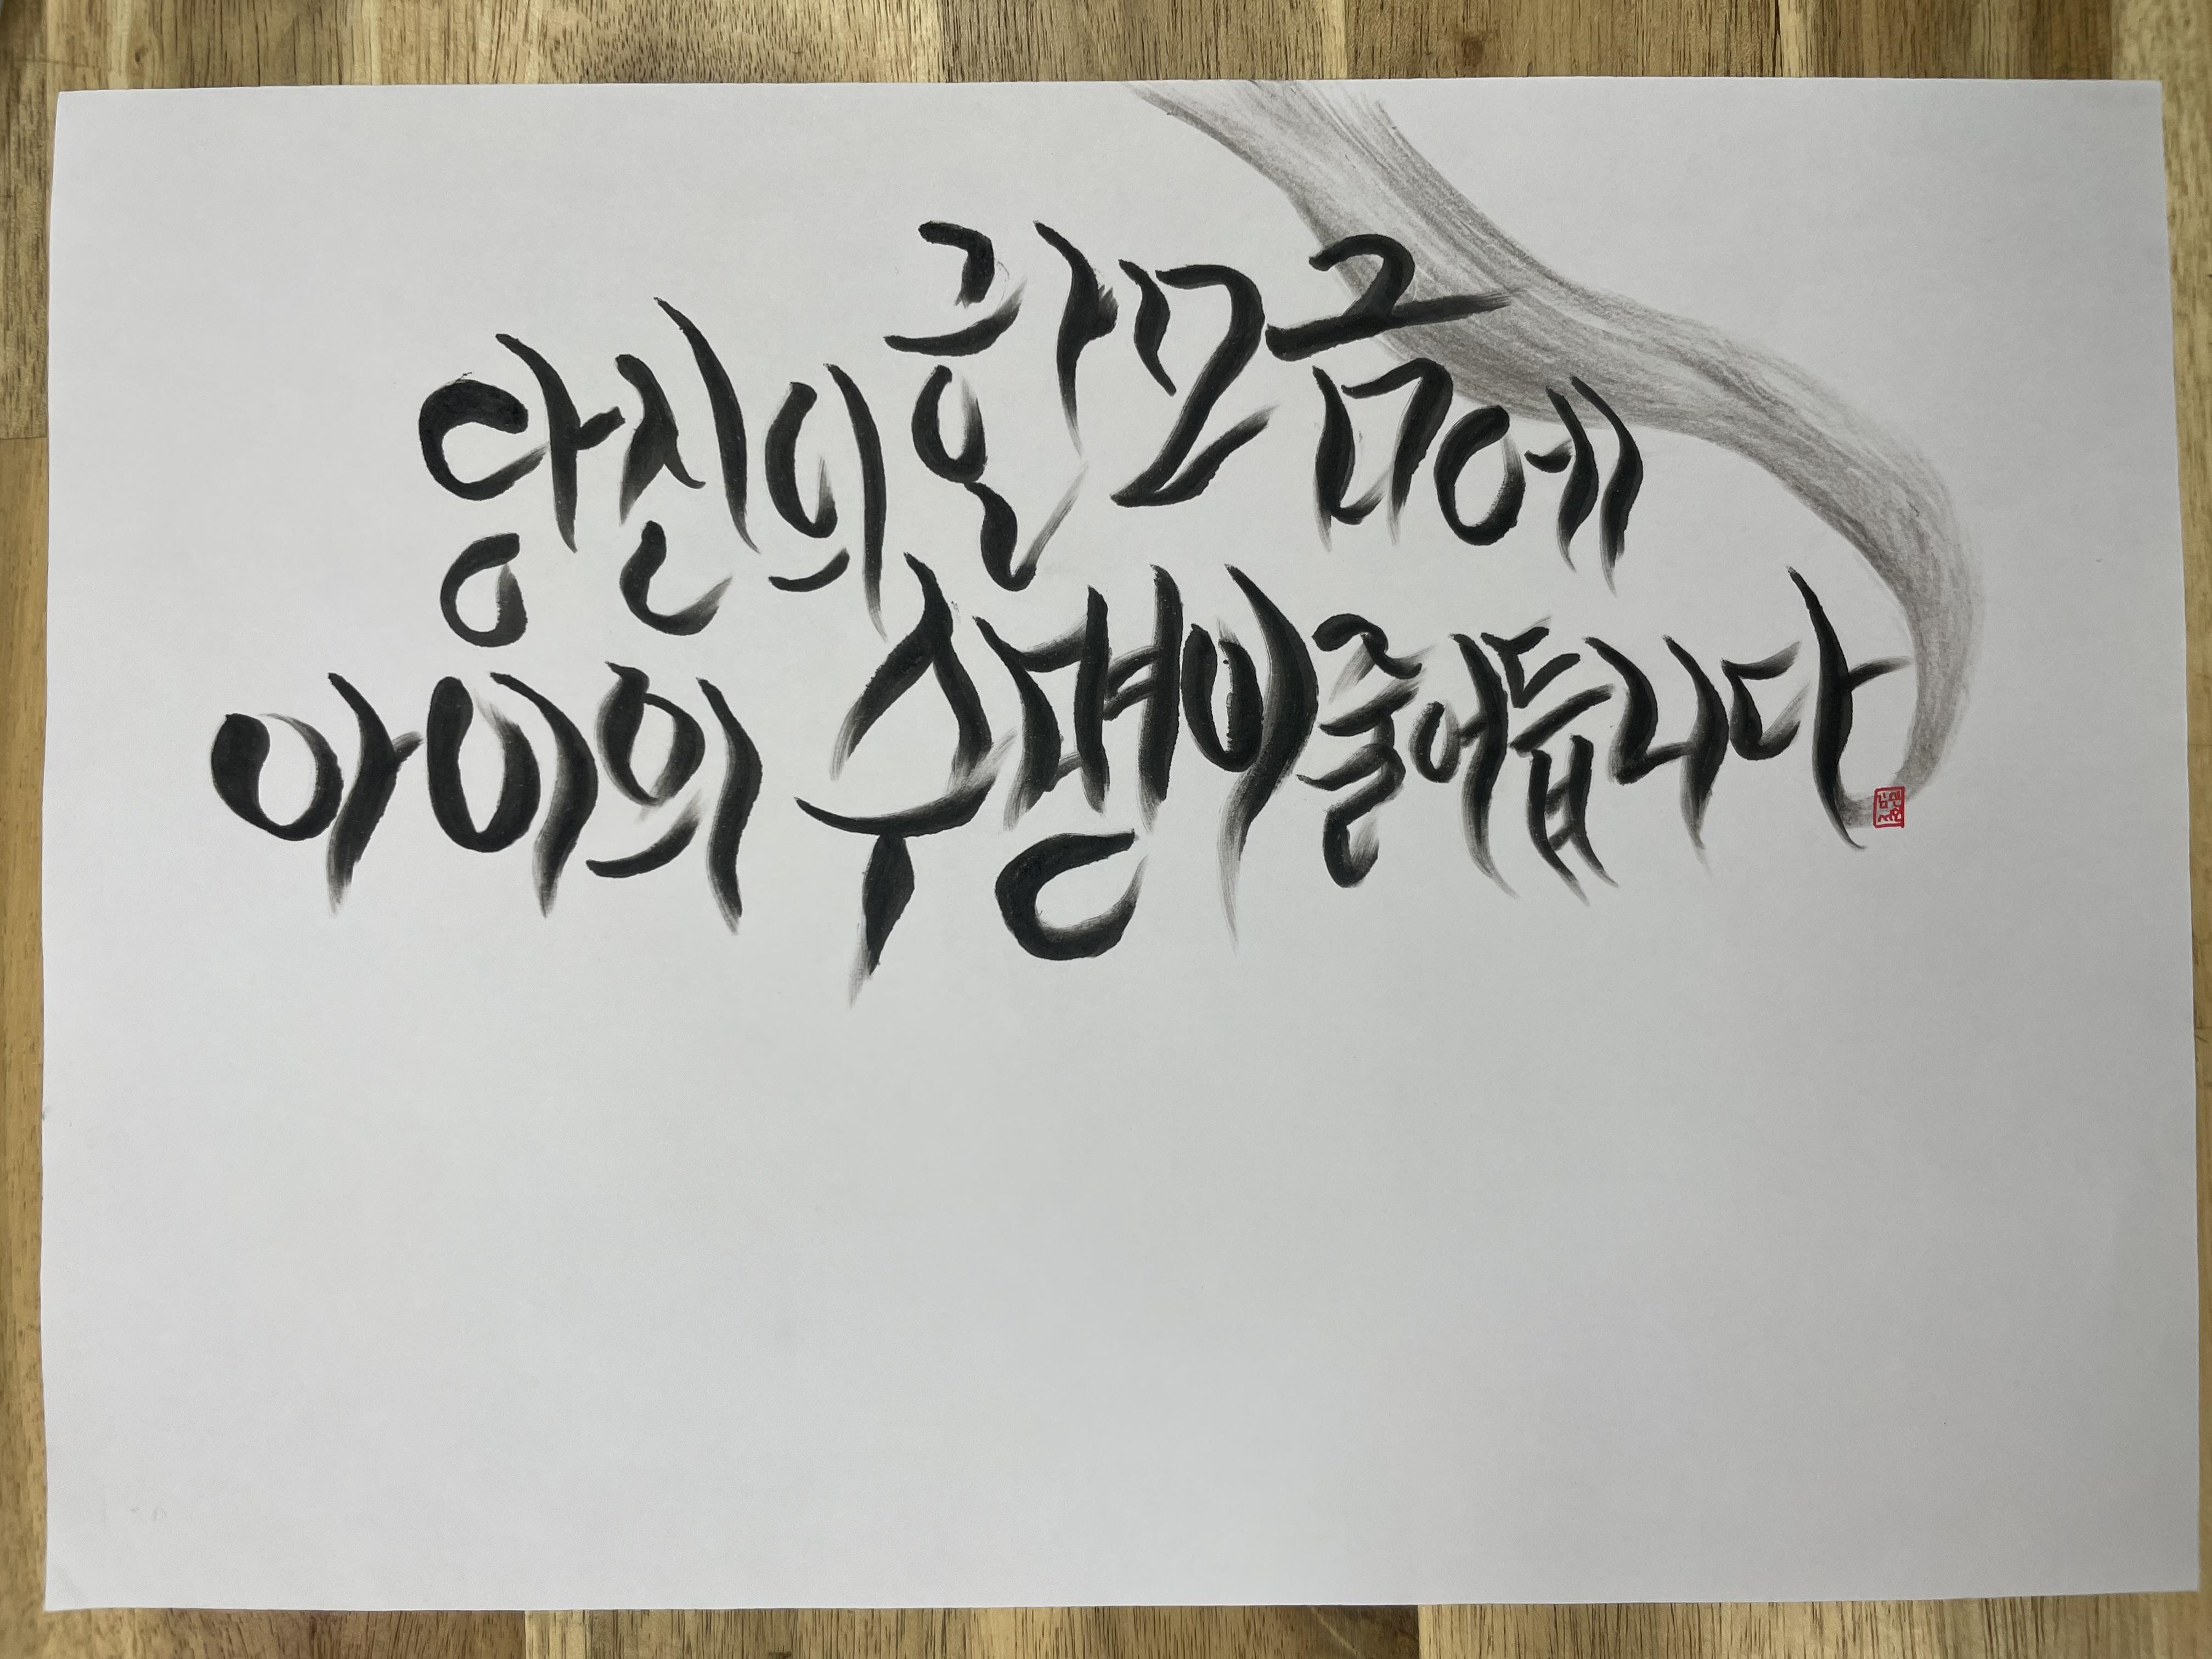 당신의 한모금에
아이의 수명이 줄어듭니다